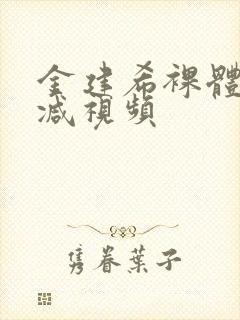 金建希裸體
減視頻
隽眷葉子